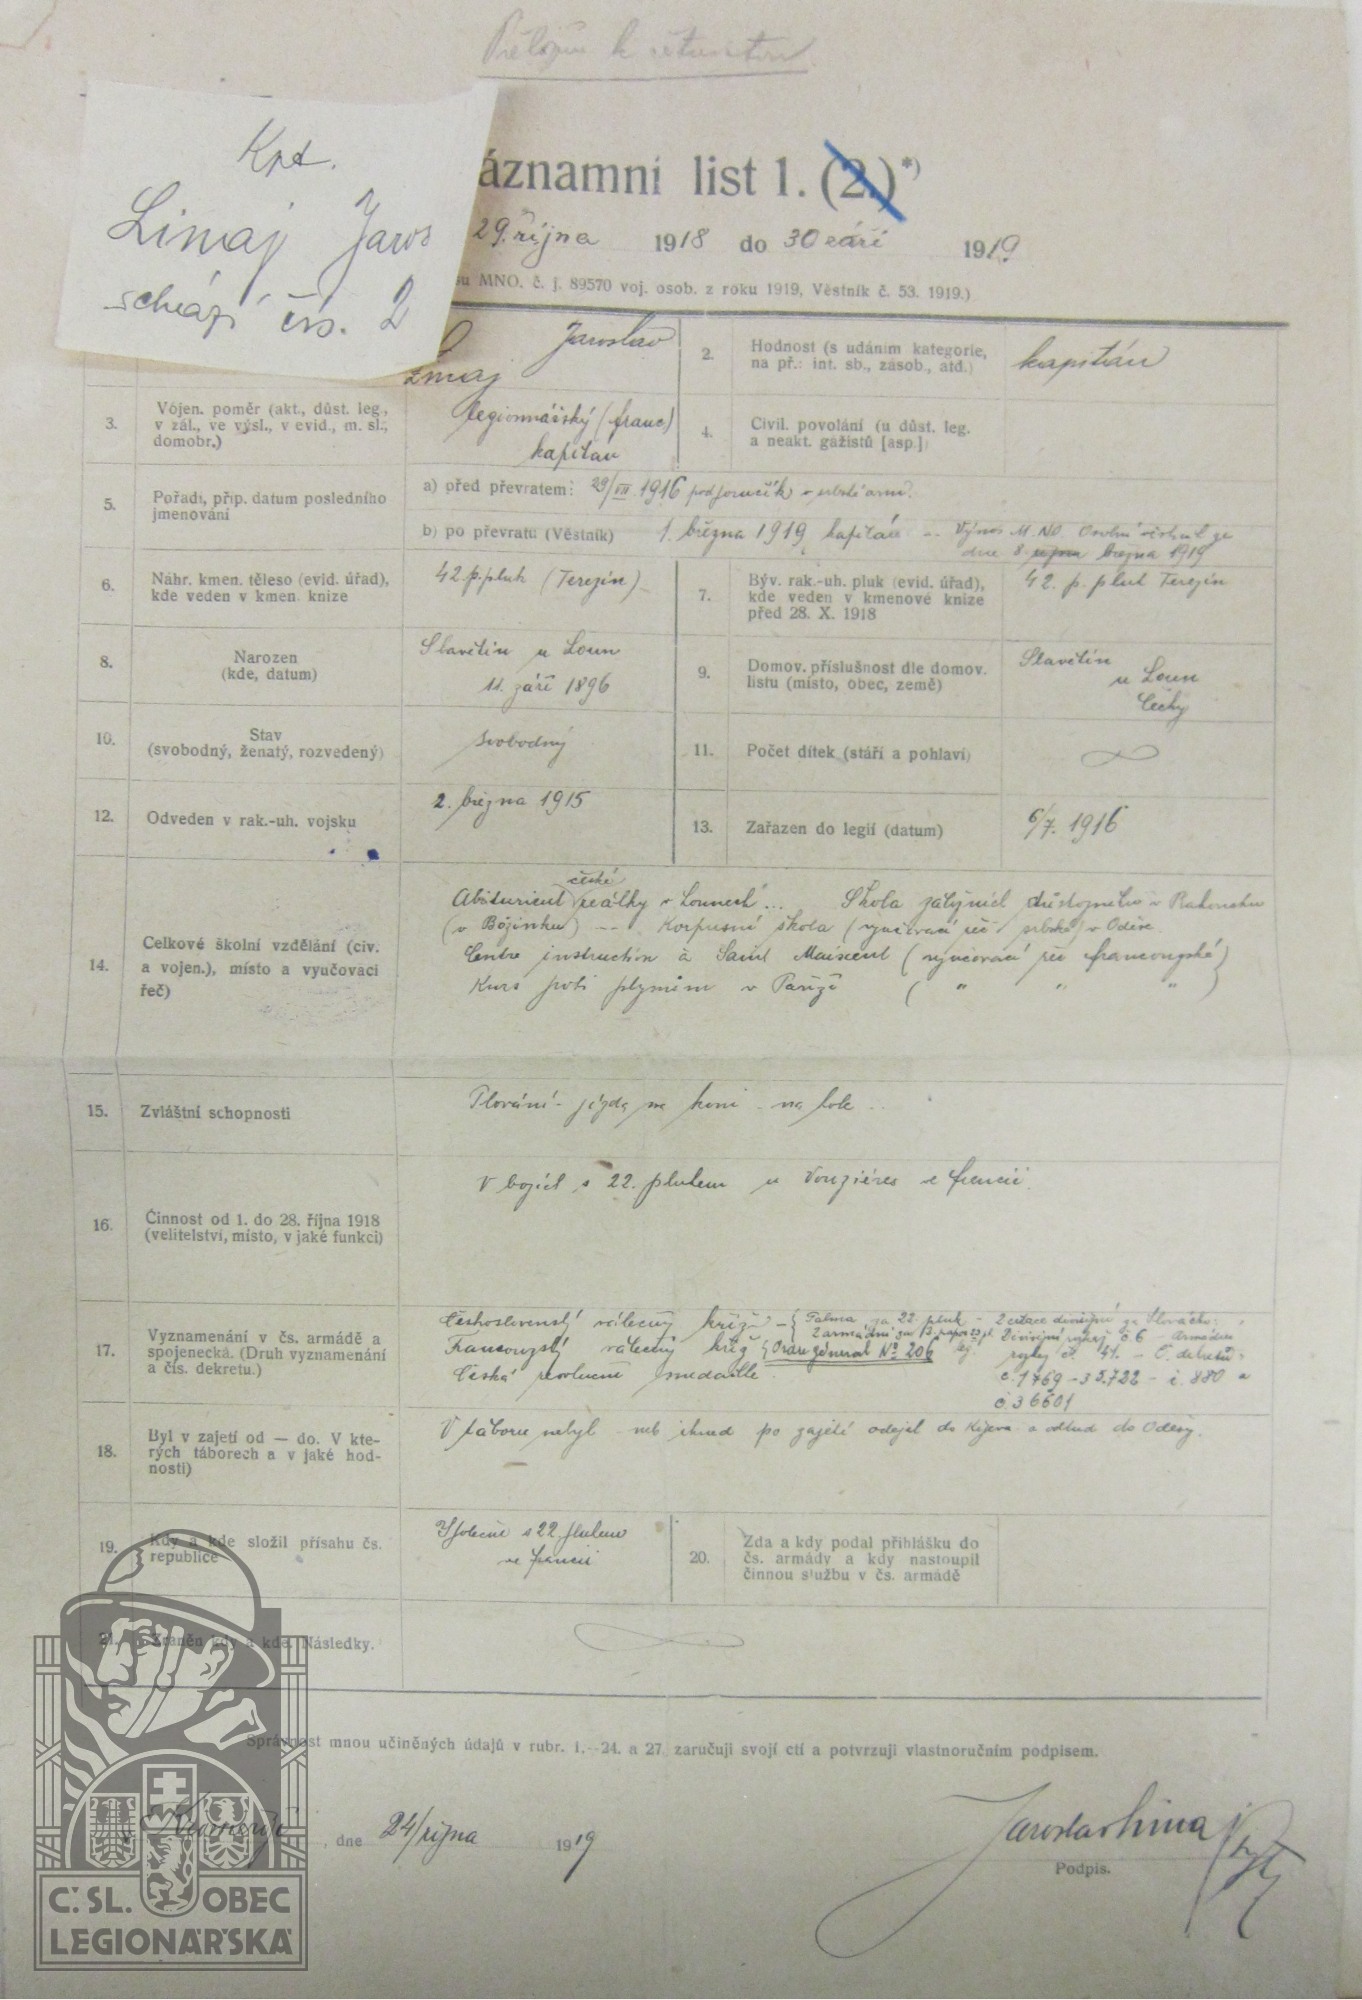 Kpt.
Limaj Jaros
schází čís. 2
áznamní list 1. (2.) *)
29. října 1918 do 30 září 1919
MNO. č. j. 89570 voj. osob. z roku 1919, Věstník č. 53. 1919.)
Jaroslav
2. Hodnost (s udáním kategorie, na př.: int. sb., zásob., atd.) kapitán
3. Vojen. poměr (akt., důst. leg., v zál., ve výsl., v evid., m. sl., domobr.) legionnářský (franc) kapitan
4. Civil. povolání (u důst. leg. a neakt. gažistů [asp.])
5. Pořadí, příp. datum posledního jmenování
a) před převratem: 29/VII. 1916 podporučík v srbské arm.
b) po převratu (Věstník) 1. března 1919 kapitán -- Výnos M.NO. Osobní věstník ze
dne 8. března 1919
6. Náhr. kmen. těleso (evid. úřad), kde veden v kmen. knize 42.p.pluk (Terezín)
7. Býv. rak.-uh. pluk (evid. úřad), kde veden v kmenové knize před 28. X. 1918 42. p. pluk Terezín
8. Narozen (kde, datum) Slavětín u Loun
11. září 1896
9. Domov. příslušnost dle domov. listu (místo, obec, země) Slavětín
u Loun
Čechy
10. Stav (svobodný, ženatý, rozvedený) svobodný
11. Počet dítek (stáří a pohlaví)
12. Odveden v rak.-uh. vojsku 2. března 1915
13. Zařazen do legií (datum) 6/7. 1916
14. Celkové školní vzdělání (civ. a vojen.), místo a vyučovací řeč)
české
Abiturient reálky v Lounech... Škola záložních důstojníků v Rakousku
(v Böginku) -- Korpusní škola (vyučovací řeč srbská) v Oděse
Centre instruction à Saint Maixent (vyučovací řeč francouzská)
Kurs proti plynům v Paříži ( " " " )
15. Zvláštní schopnosti Plování - jízda na koni - na kole ..
16. Činnost od 1. do 28. října 1918 (velitelství, místo, v jaké funkci) V bojích s 22. plukem u Vouziéres ve francii.
17. Vyznamenání v čs. armádě a spojenecká. (Druh vyznamenání a čís. dekretu.)
Československý válečný kříž - { Palma za 22. pluk - 2 citace divisijní za Slovácku
Francouzský válečný kříž { Ordre général No 206
Česká revoluční medaille.
č. 1769 - 35.722 - č. 880 a
č. 36601
18. Byl v zajetí od — do. V kterých táborech a v jaké hodnosti) V táboru nebyl neb ihned po zajetí odejel do Kijeva a odtud do Odesy.
19. Kdy a kde složil přísahu čs. republice Společně s 22. plukem
ve francii
20. Zda a kdy podal přihlášku do čs. armády a kdy nastoupil činnou službu v čs. armádě
21. Zraněn kdy a kde. Následky.
Správnost mnou učiněných údajů v rubr. 1.—24. a 27. zaručuji svojí ctí a potvrzuji vlastnoručním podpisem.
, dne 24/října 1919
Jaroslav Lima
Podpis.
Č.SL. OBEC
LEGIONÁŘSKÁ